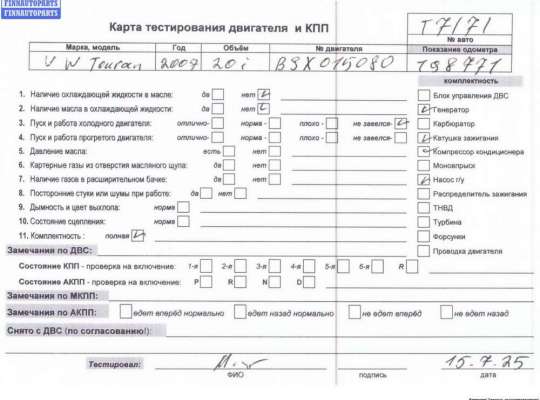 FINNAUTOPARTS
FINNAUTOPARTS
Карта тестирования двигателя и КПП
T7/71
№ авто
Марка, модель Год Объём № двигателя Показание одометра
VW Touran 2007 20i BSX015080 198771
комплектность
1. Наличие охлаждающей жидкости в масле: да нет
2. Наличие масла в охлаждающей жидкости: да нет
3. Пуск и работа холодного двигателя: отлично- норма - плохо - не завелся-
4. Пуск и работа прогретого двигателя: отлично- норма - плохо - не завелся-
5. Давление масла: есть нет
6. Картерные газы из отверстия масляного щупа: да нет
7. Наличие газов в расширительном бачке: да нет
8. Посторонние стуки или шумы при работе: да нет
9. Дымность и цвет выхлопа: норма
10. Состояние сцепления: норма
11. Комплектность : полная
Блок управления ДВС
Генератор
Карбюратор
Катушка зажигания
Компрессор кондиционера
Моновпрыск
Насос г/у
Распределитель зажигания
ТНВД
Турбина
Форсунки
Проводка двигателя
Замечания по ДВС:
Состояние КПП - проверка на включение: 1-я 2-я 3-я 4-я 5-я 6-я R
Состояние АКПП - проверка на включение: P R N D
Замечания по МКПП:
Замечания по АКПП: едет вперёд нормально едет назад нормально не едет вперёд не едет назад
Снято с ДВС (по согласованию!):
Тестировал: 15.7.25
ФИО подпись дата